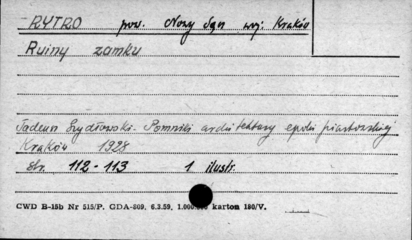 RYTRO pow. Nowy Sącz woj. Kraków
Ruiny zamku
Tadeusz Szydłowski. Pomniki architektury epoki piastowskiej
Kraków 1928
str. 112-113 1 ilustr.
CWD B-15b Nr 515/P. GDA-809, 6.3.59, karton 190/V.